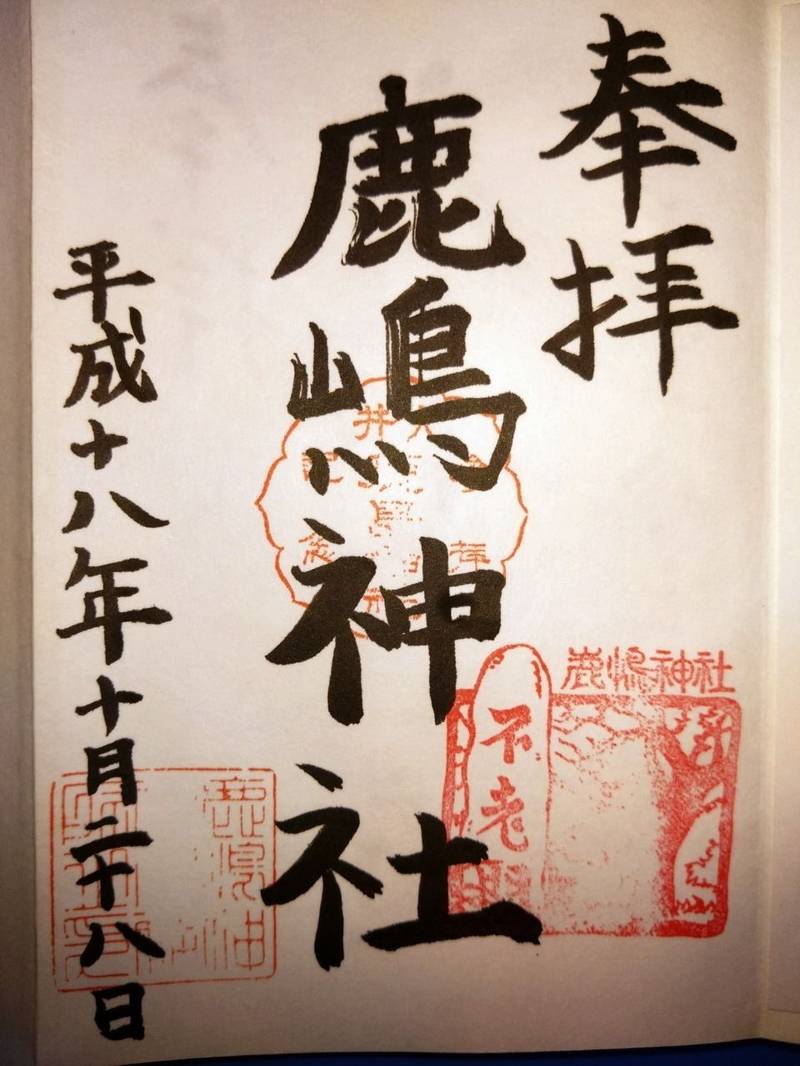 奉拝
鹿嶋神社
鹿嶋神社
不老
平成十八年十月二十八日